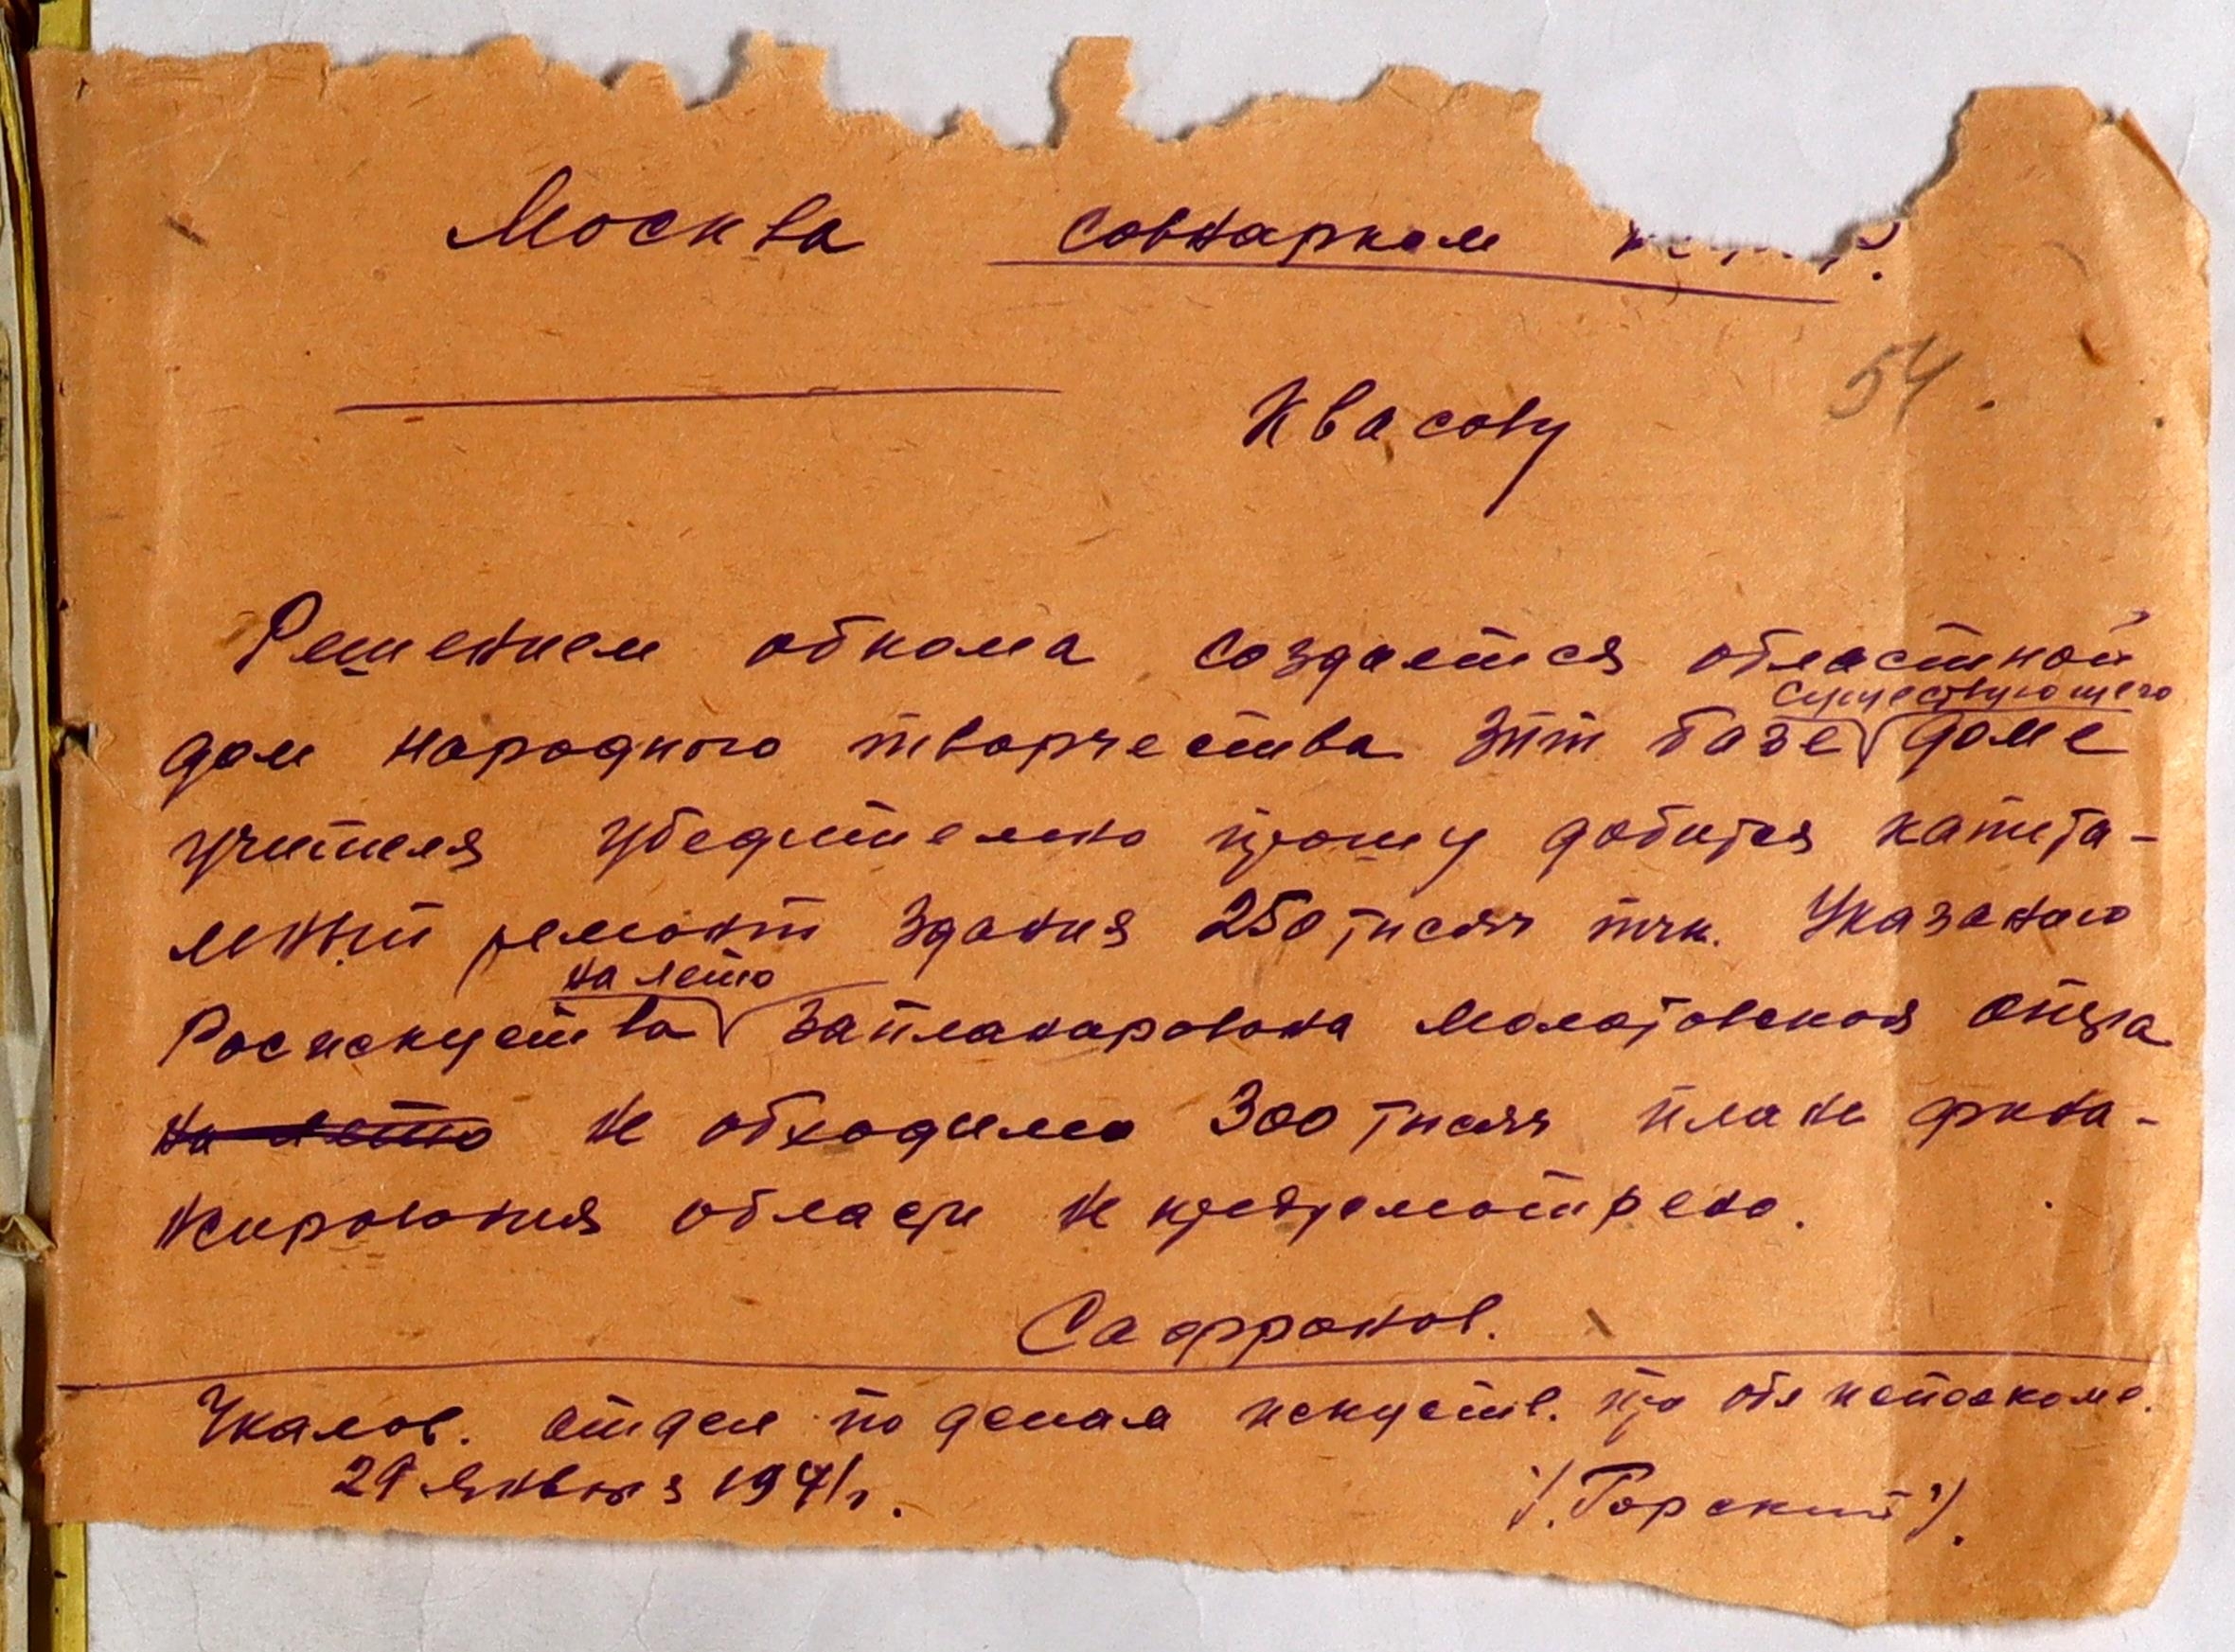 Москва Совнарком
54.
Квасову
Решением обкома создается областной
существующего
дом народного творчества зпт базе доме
учителя убедительно прошу добится капита-
льный ремонт здания 250 тысяч тчк. Указанию
на лето
Росискуства запланирована Молотовская опера
на лето не обходимо 300 тысяч плане фина-
нсирования области не предусмотрено.
Сафронов.
Чкалов. отдел по делам искуств. при обл исполкоме.
29 января 1941 г.
/. Горский /.